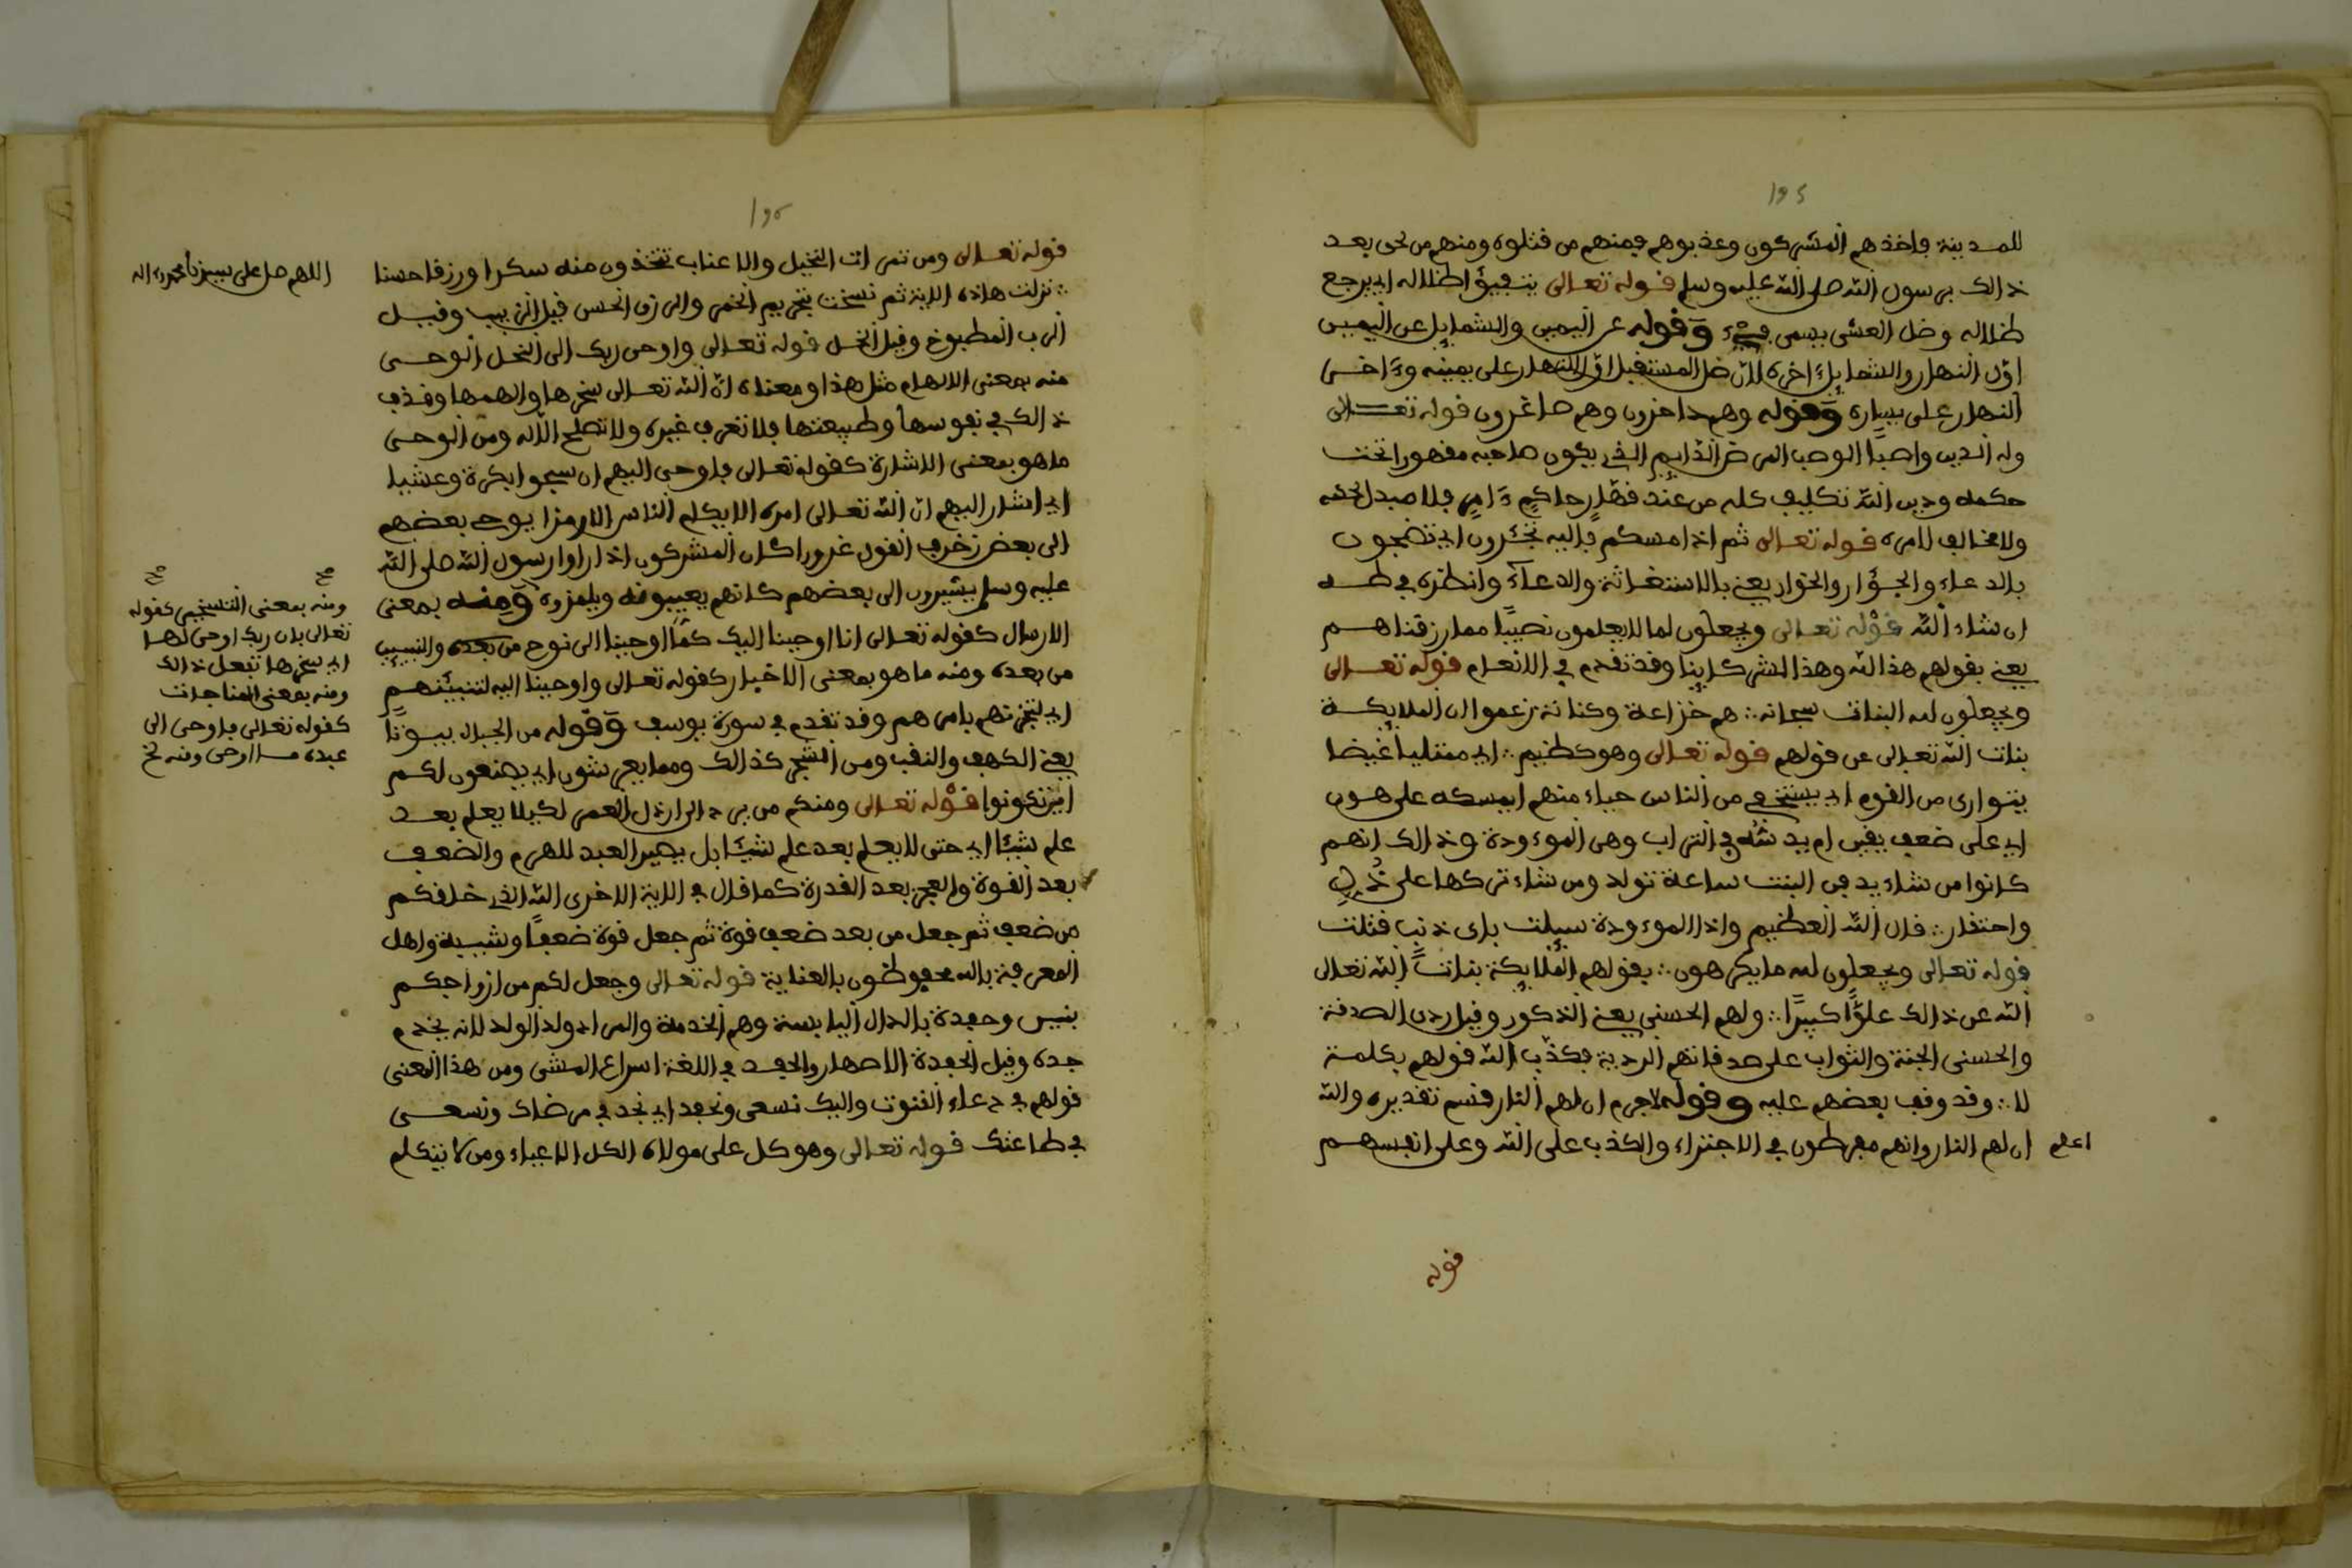 للمدينة فاخذهم المشركون وعذبوهم فمنهم من قتلوه ومنهم من نجى بعد
ذالك برسول الله صلى الله عليه وسلم قوله تعالى يتفيؤا ظلاله اي يرجع
ظلاله وظل العشي يسمى فيء وقوله عن اليمين والشمايل عن اليمين
اول النهار والشمايل ءاخره لان ظل المستقبل اول النهار على يمينه وءاخر
النهار على يساره وقوله وهم داخرون وهم صاغرون قوله تعالى
وله الدين واصبا الوصب المرض الدايم الذي يكون صاحبه مقهورا تحت
حكمه ودين الله تكليف كله من عند قهار حاكم ءامر فلا مبدل لحكمه
ولا مخالف لامره قوله تعالى ثم اذا مسكم فاليه تجئرون اي تضجون
بالدعاء والجؤار والخوار يعني بالاستغاثة والدعاء وانظره في طه
ان شاء الله قوله تعالى ويجعلون لما لا يعلمون نصيبا مما رزقناهم
يعني بقولهم هذا لله وهذا لشركاينا وقد تقدم في الانعام قوله تعالى
ويجعلون لله البنات سبحانه ∴ هم خزاعة وكنانة زعموا ان الملايكة
بنات الله تعالى عن قولهم قوله تعالى وهو كظيم ∴ اي ممتليا غيضا
يتوارى من القوم اي يستخفي من الناس حياء منهم ايمسكه على هون
اي على ضعف يقين ام يدسه في التراب وهي الموءودة وذالك انهم
كانوا من شاء يدفن البنت ساعة تولد ومن شاء تركها على ذل
واحتقار ∴ قال الله العظيم واذا الموءودة سيلت باي ذنب قتلت
قوله تعالى ويجعلون لله ما يكرهون ∴ بقولهم الملايكة بنات الله تعالى
الله عن ذالك علوا كبيرا ∴ ولهم الحسنى يعني الذكور وقيل ردن الصدقة
والحسنى الجنة والثواب على صدقاتهم الردية فكذب الله قولهم بكلمة
لا ∴ وقد وقف بعضهم عليه وقوله لا جرم ان لهم النار قسم تقديره والله
ان لهم النار وانهم مفرطون في الاجتراء والكذب على الله وعلى انفسهم
اعلم
قوله
قوله تعالى ومن ثمرات النخيل والاعناب تتخذون منه سكرا ورزقا حسنا
∴ نزلت هاذه الاية ثم نسخت بتحريم الخمر والرزق الحسن قيل الزبيب وقيل
الرب المطبوخ وقيل الخل قوله تعالى واوحى ربك الى النحل الوحي
منه بمعنى الالهام مثل هذا ومعناه ان الله تعالى سخرها والهمها وقذف
ذالك في نفوسها وطبيعتها فلا تعرف غيره ولا تصلح الا له ومن الوحي
ما هو بمعنى الاشارة كقوله تعالى فاوحى اليهم ان سبحوا بكرة وعشيا
اي اشار اليهم ان الله تعالى امره الا يكلم الناس الا رمزا يوحي بعضهم
الى بعض زخرف القول غرورا كان المشركون اذا راوا رسول الله صلى الله
عليه وسلم يشيرون الى بعضهم كانهم يعيبونه ويلمزوه ومنه بمعنى
الارسال كقوله تعالى انا اوحينا اليك كما اوحينا الى نوح من بعده والنبيين
من بعده ومنه ما هو بمعنى الاخبار كقوله تعالى واوحينا اليه لتنبئنهم
اي لتخبرنهم بامرهم وقد تقدم في سورة يوسف وقوله من الجبال بيوتا
يعني الكهف والنقب ومن الشجر كذالك ومما يعرشون اي يصنعون لكم
اين تكونوا قوله تعالى ومنكم من يرد الى ارذل العمر لكيلا يعلم بعد
علم شيئا اي حتى لا يعلم بعد علم شيئا بل يصير العبد للهرم والضعف
بعد القوة والعجز بعد القدرة كما قال في الاية الاخرى الله الذي خلقكم
من ضعف ثم جعل من بعد ضعف قوة ثم جعل قوة ضعفا وشيبة واهل
المعرفة بالله محفوظون بالعناية قوله تعالى وجعل لكم من ازواجكم
بنين وحفدة بالدال اليابسة وهم الخدمة والمراد ولد الولد لانه يخدم
جده وقيل الحفدة الاصهار والحفد في اللغة اسراع المشي ومن هذا المعنى
قولهم في دعاء القنوت واليك نسعى ونحفد اي نجد في مرضاك ونسعى
في طاعتك قوله تعالى وهو كل على مولاه الكل الاعياء ومن لا يتكلم
اللهم صل على سيدنا محمد وءاله
صح صح
ومنه بمعنى التسخير كقوله
تعالى بان ربك اوحى لها
اي سخرها تفعل ذالك
ومنه بمعنى المناجات
كقوله تعالى فاوحى الى
عبده ما اوحى ومنه